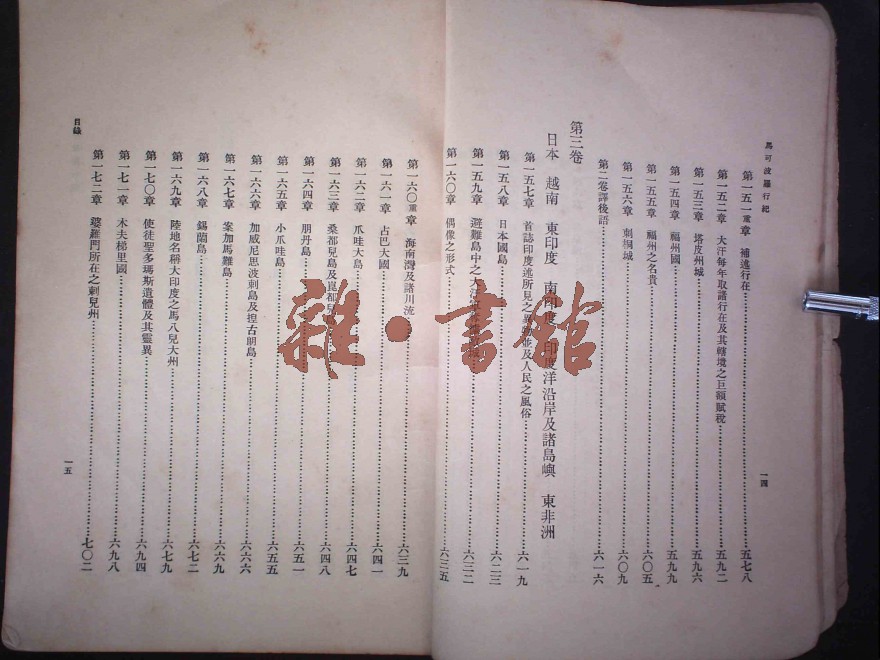 馬可波羅行紀
一四
第一五一重章 補述行在 五七八
第一五二章 大汗每年取諸行在及其轄境之巨額賦稅 五九二
第一五三章 塔皮州城 五九六
第一五四章 福州國 五九九
第一五五章 福州之名貴 六〇五
第一五六章 刺桐城 六〇九
第二卷譯後語 六一六
第三卷
日本 越南 東印度 南印度 印度洋沿岸及諸島嶼 東非洲
第一五七章 首誌印度述所見之 並及人民之風俗 六一九
第一五八章 日本國島 六二三
第一五九章 避難島中之大汗 六三二
第一六〇章 偶像之形式 六三五
第一六〇重章 海南灣及諸川流 六三九
第一六一章 占巴大國 六四一
第一六二章 爪哇大島 六四七
第一六三章 桑都兒島及崑都兒島 六四八
第一六四章 朋丹島 六五一
第一六五章 小爪哇島 六五五
第一六六章 加威尼思波剌島及揑古朗島 六六六
第一六七章 案加馬難島 六六九
第一六八章 錫蘭島 六七二
第一六九章 陸地名稱大印度之馬八兒大州 六七九
第一七〇章 使徒聖多瑪斯遺體及其靈異 六九四
第一七一章 木夫梯里國 六九八
第一七二章 婆羅門所在之剌兒州 七〇二
目錄
一五
雜·書館